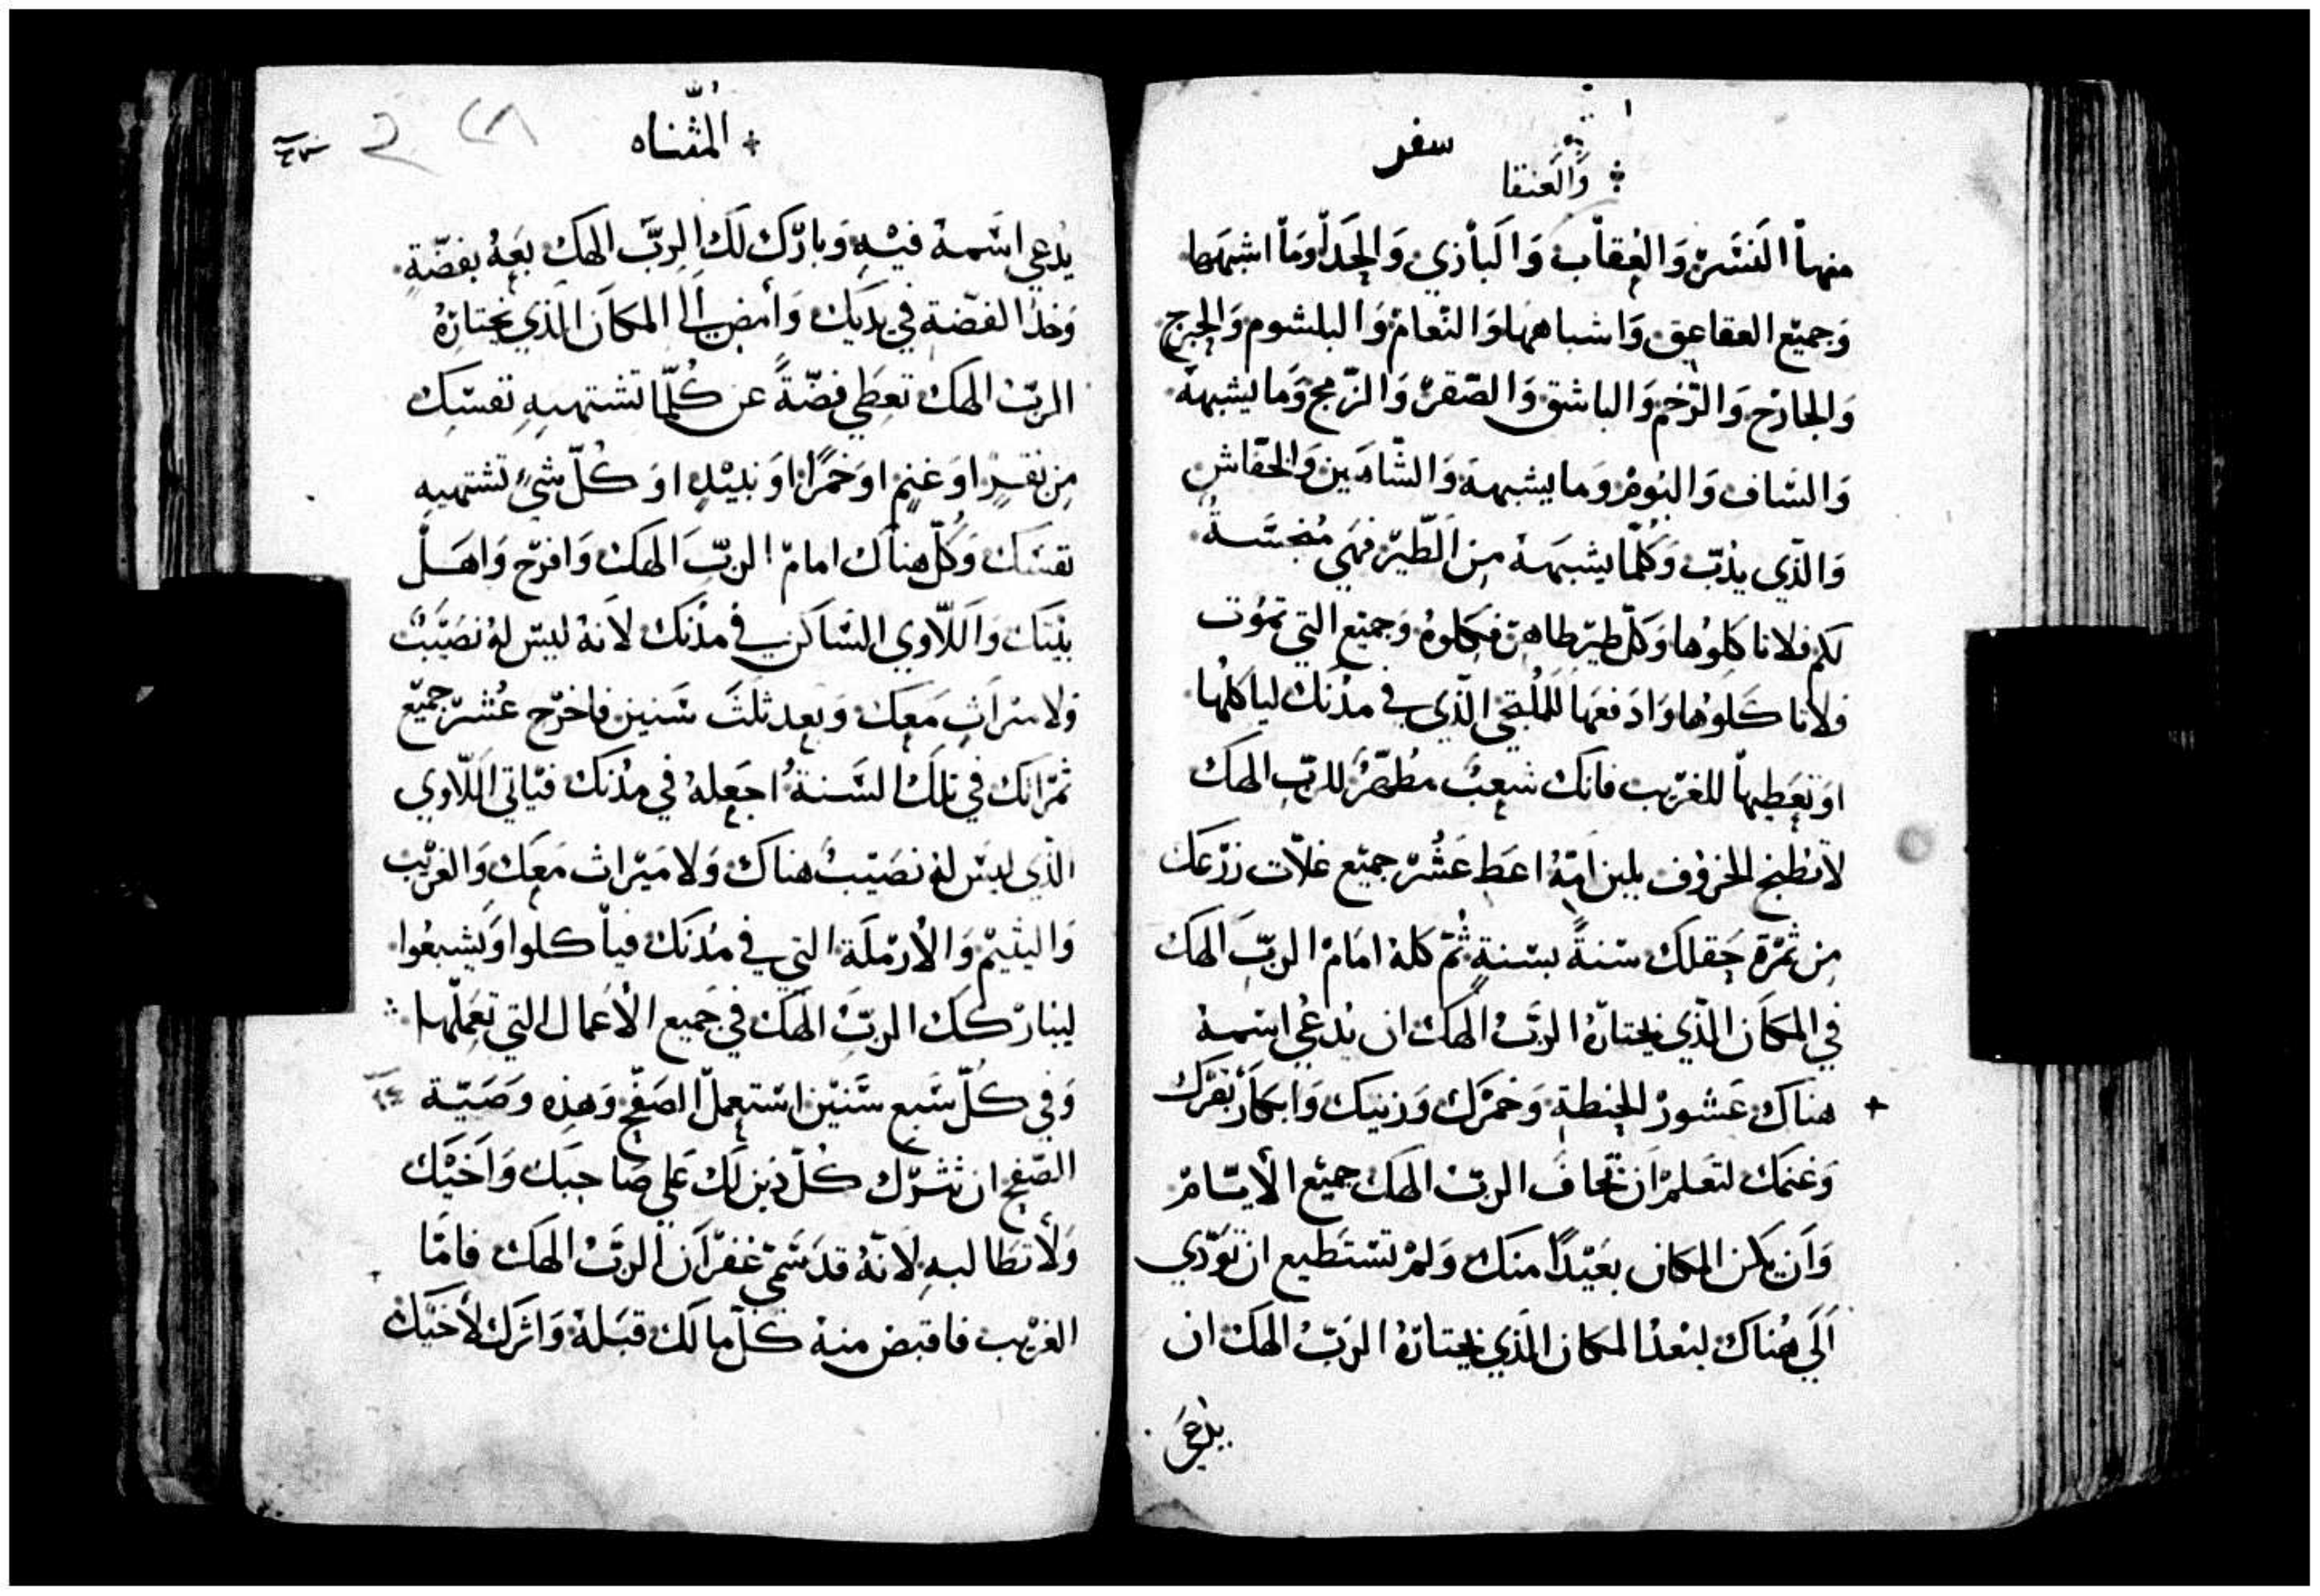 سفر
والعنقا
منها النسر والعقاب والبازي والحدا وما اشبهها
وجميع العقاعق واشباهها والنعام والبلشوم والجرج
والجارح والرخم والباشق والصقر والزمج وما يشبهه
والساف والبوم وما يشبهه والشاهين والخفاش
والذي يذب وكلما يشبهه من الطير فهي منجسة
لكم فلا تاكلوها وكل طير طاهر فكلوه وجميع التي تموت
فلا تاكلوها وادفعها للملتجي الذي في مدنك لياكلها
او تعطيها للغريب فانك شعب مطهر للرب الهك
لا تطبخ الخروف بلبن امه اعط عشر جميع غلات زرعك
من ثمرة حقلك سنة بسنة ثم كله امام الرب الهك
في المكان الذي يختاره الرب الهك ان يدعي اسمه
هناك عشور الحنطة وخمرك وزيتك وابكار بقرك
وغنمك لتعلم ان تخاف الرب الهك جميع الايام
وان يكن المكان بعيدا منك ولم تستطيع ان تودي
الي هناك لبعد المكان الذي يختاره الرب الهك ان
يدعي
المثناه
يدعي اسمه فيه وبارك لك الرب الهك بعه بفضة
وخذ الفضة في يديك وامض الي المكان الذي يختاره
الرب الهك تعطي فضة عن كلما تشتهيه نفسك
من بقر او غنم او خمرا او نبيذ او كل شي تشتهيه
نفسك وكل هناك امام الرب الهك وافرح واهل
بيتك واللاوي الساكن في مدنك لانه ليس له نصيب
ولا ميراث معك وبعد ثلث سنين فاخرج عشر جميع
ثمراتك في تلك السنة اجعله في مدنك فياتي اللاوي
الذي ليس له نصيب هناك ولا ميراث معك والغريب
واليتيم والارملة التي في مدنك فيأكلوا ويشبعوا
ليباركك الرب الهك في جميع الاعمال التي تعملها
وفي كل سبع سنين استعمل الصفح وهذه وصية
الصفح ان تترك كل دين لك علي صاحبك واخيك
ولا تطالبه لانه قد سمي غفران الرب الهك فاما
الغريب فاقبض منه كل ما لك قبله واترك لاخيك